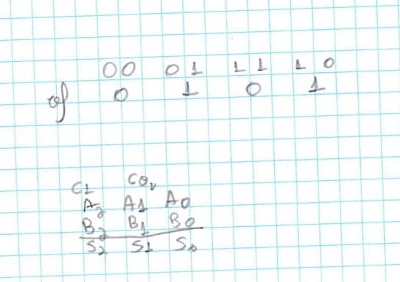 00 01 11 10
of 0 1 0 1
C1 C0
A2 A1 A0
B2 B1 B0
S2 S1 S0